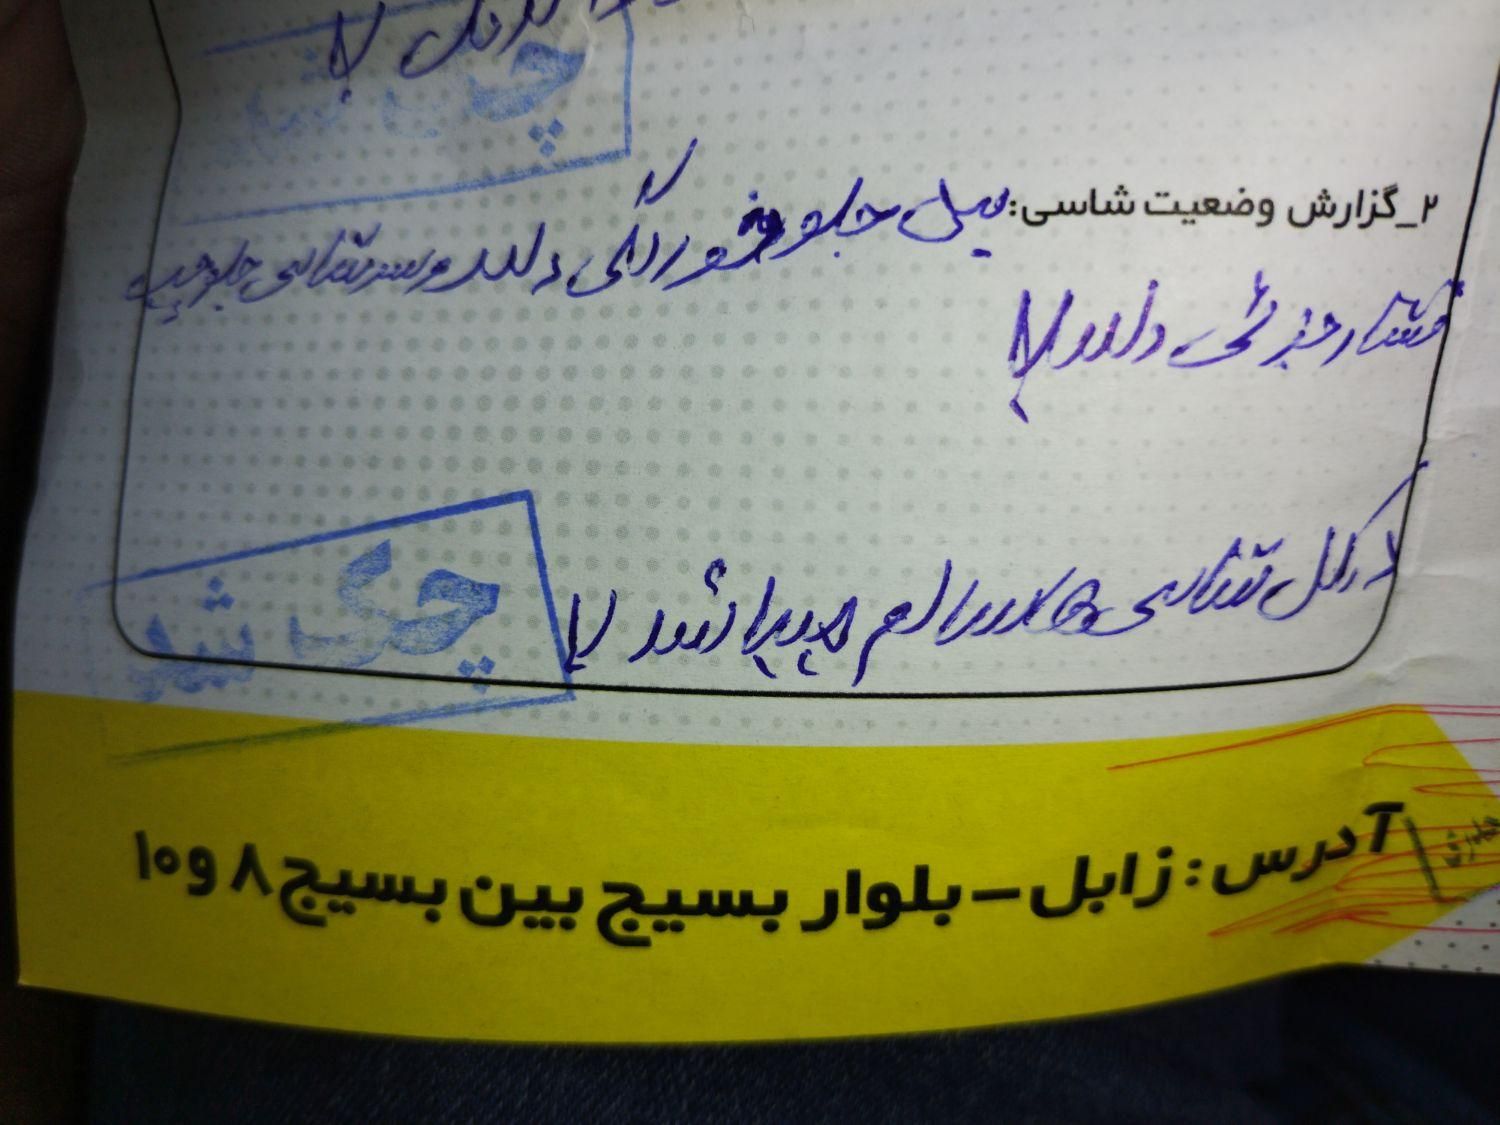 دارد
چک شد
۲_گزارش وضعیت شاسی: سینی جلو خوردگی دارد و سرشاسی جلو چپ
فشار جزئی دارد
در کل شاسی ها سالم میباشد
چک شد
آدرس: زابل – بلوار بسیج بین بسیج ۸ و ۱۰